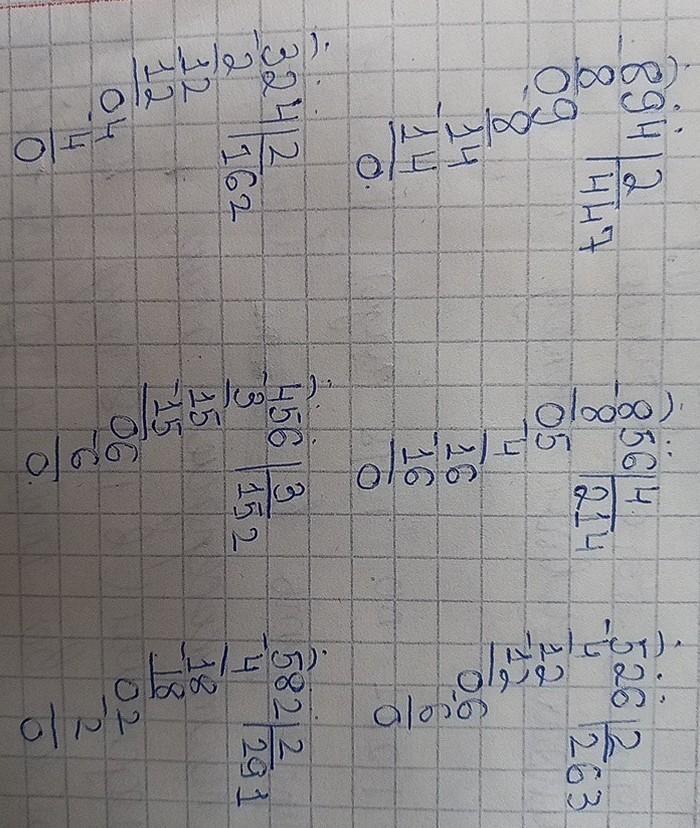 -894|2
8 |447
09
-8
14
-14
0.
-856|4
8 |214
05
-4
16
-16
0
-526|2
4 |263
-12
12
06
-6
0
-324|2
2 |162
-12
12
04
-4
0
-456|3
3 |152
-15
15
06
-6
0.
-582|2
4 |291
-18
18
02
-2
0